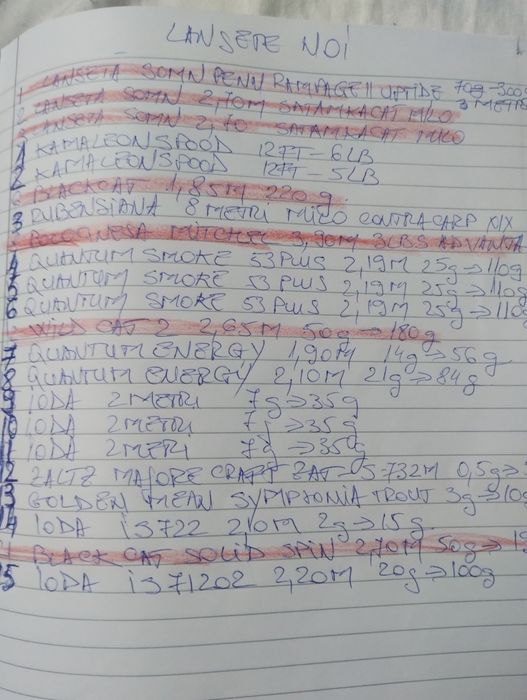 LANSETE NOI
1 LANSETA SOMN PENN RAMPAGE II UPTIDE 70g-300g
3 METRI
2 LANSETA SOMN 2,70M SATAMKACAT MILO
3 LANSETA SOMN 2,70 SATAMKACAT MILO
1 KAMALEONSPOOD 12FT-6LB
2 KAMALEONSPOOD 12FT-5LB
BLACKCAT 1,85M 220g
3 RUBENSIANA 8 METRI MILO CONTRACARP NIX
BOLOGNESA MITCHEL 3,90M 3LBS
4 QUANTUM SMOKE S3 PLUS 2,19M 25g→110g
5 QUANTUM SMOKE S3 PLUS 2,19M 25g→110g
6 QUANTUM SMOKE S3 PLUS 2,19M 25g→110
WILD CAT 2 2,65M 50g→180g
7 QUANTUM ENERGY 1,90M 14g→56g
8 QUANTUM ENERGY 2,10M 21g→84g
IODA 2METRI 7g→35g
IODA 2METRI 7g→35g
IODA 2METRI 7g→35g
ZALTZ MAJORE CRAFT ZAT-S-732M 0,5g→
13 GOLDEN MEAN SYMPHONIA TROUT 3g→10
14 IODA iS722 2,10M 2g→15g
BLACK CAT SOLID SPIN 2,70M 50g→
15 IODA iS71202 2,20M 20g→100g